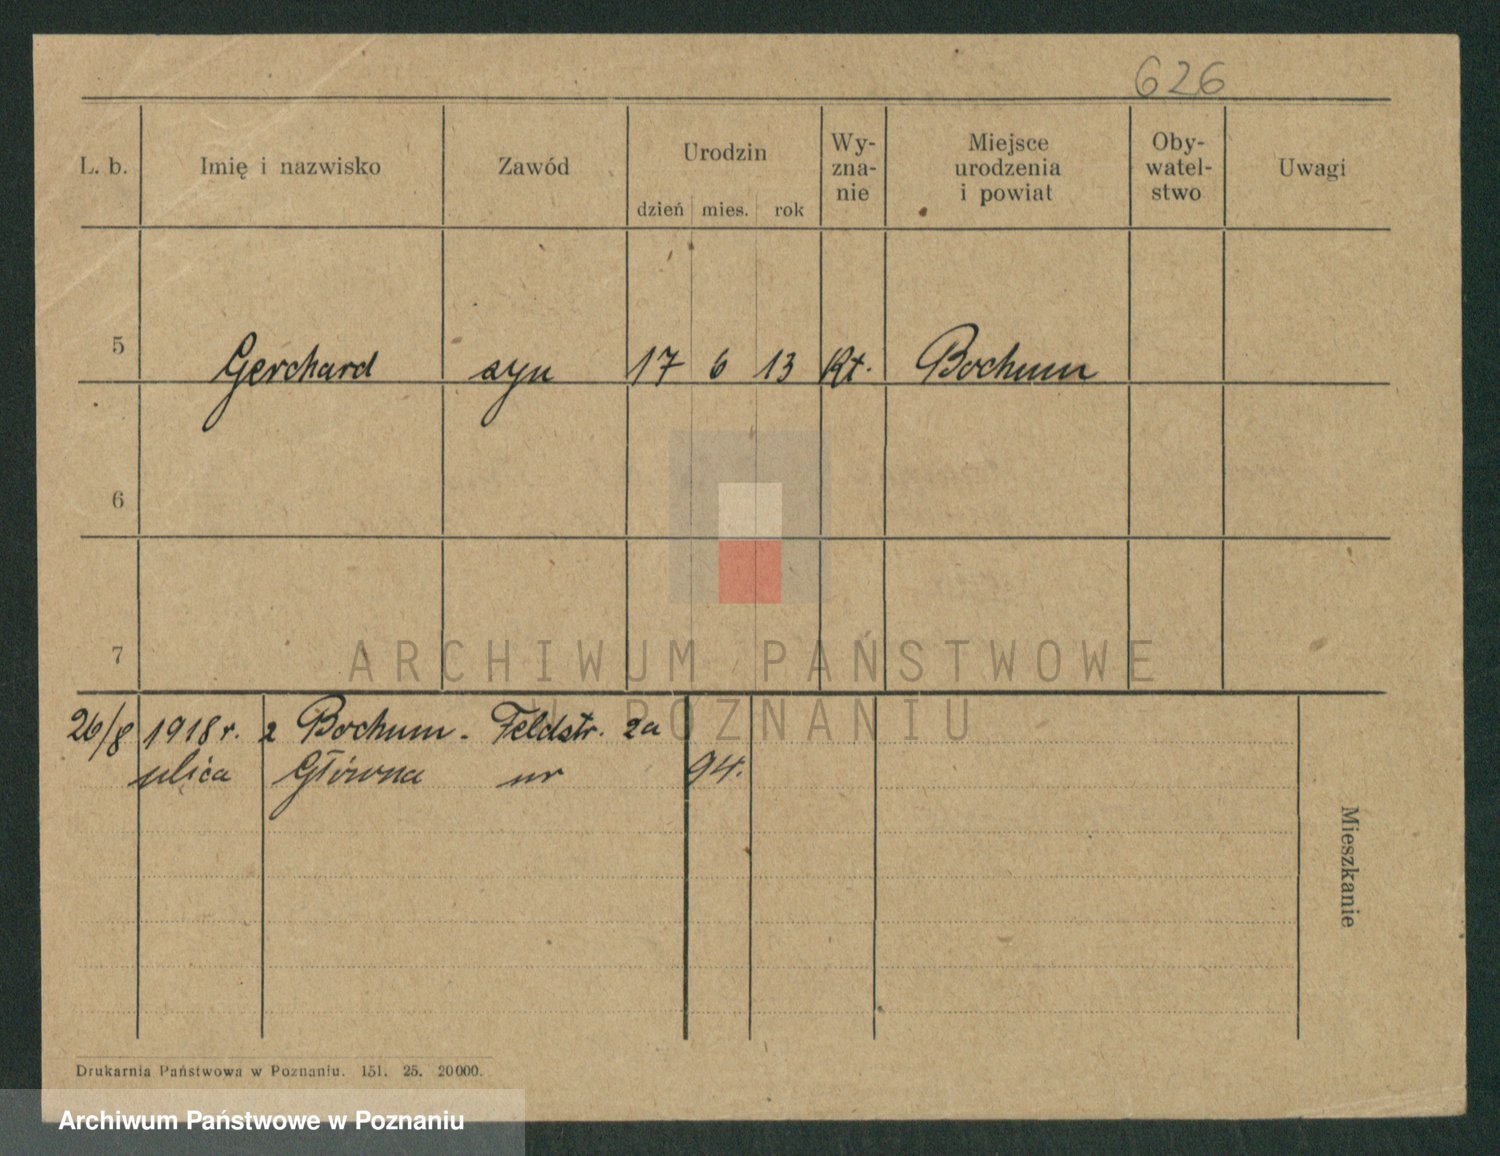 626
L. b. Imię i nazwisko Zawód Urodzin Wy-zna-nie Miejsce urodzenia i powiat Oby-watel-stwo Uwagi
dzień mies. rok
5 Gerchard syn 17 6 13 Kt. Bochum
6
7
ARCHIWUM PAŃSTWOWE
W POZNANIU
26/8 1918 r. z Bochum - Feldstr. 2a
ulica Główna nr 94.
Mieszkanie
Drukarnia Państwowa w Poznaniu. 151. 25. 20000.
Archiwum Państwowe w Poznaniu